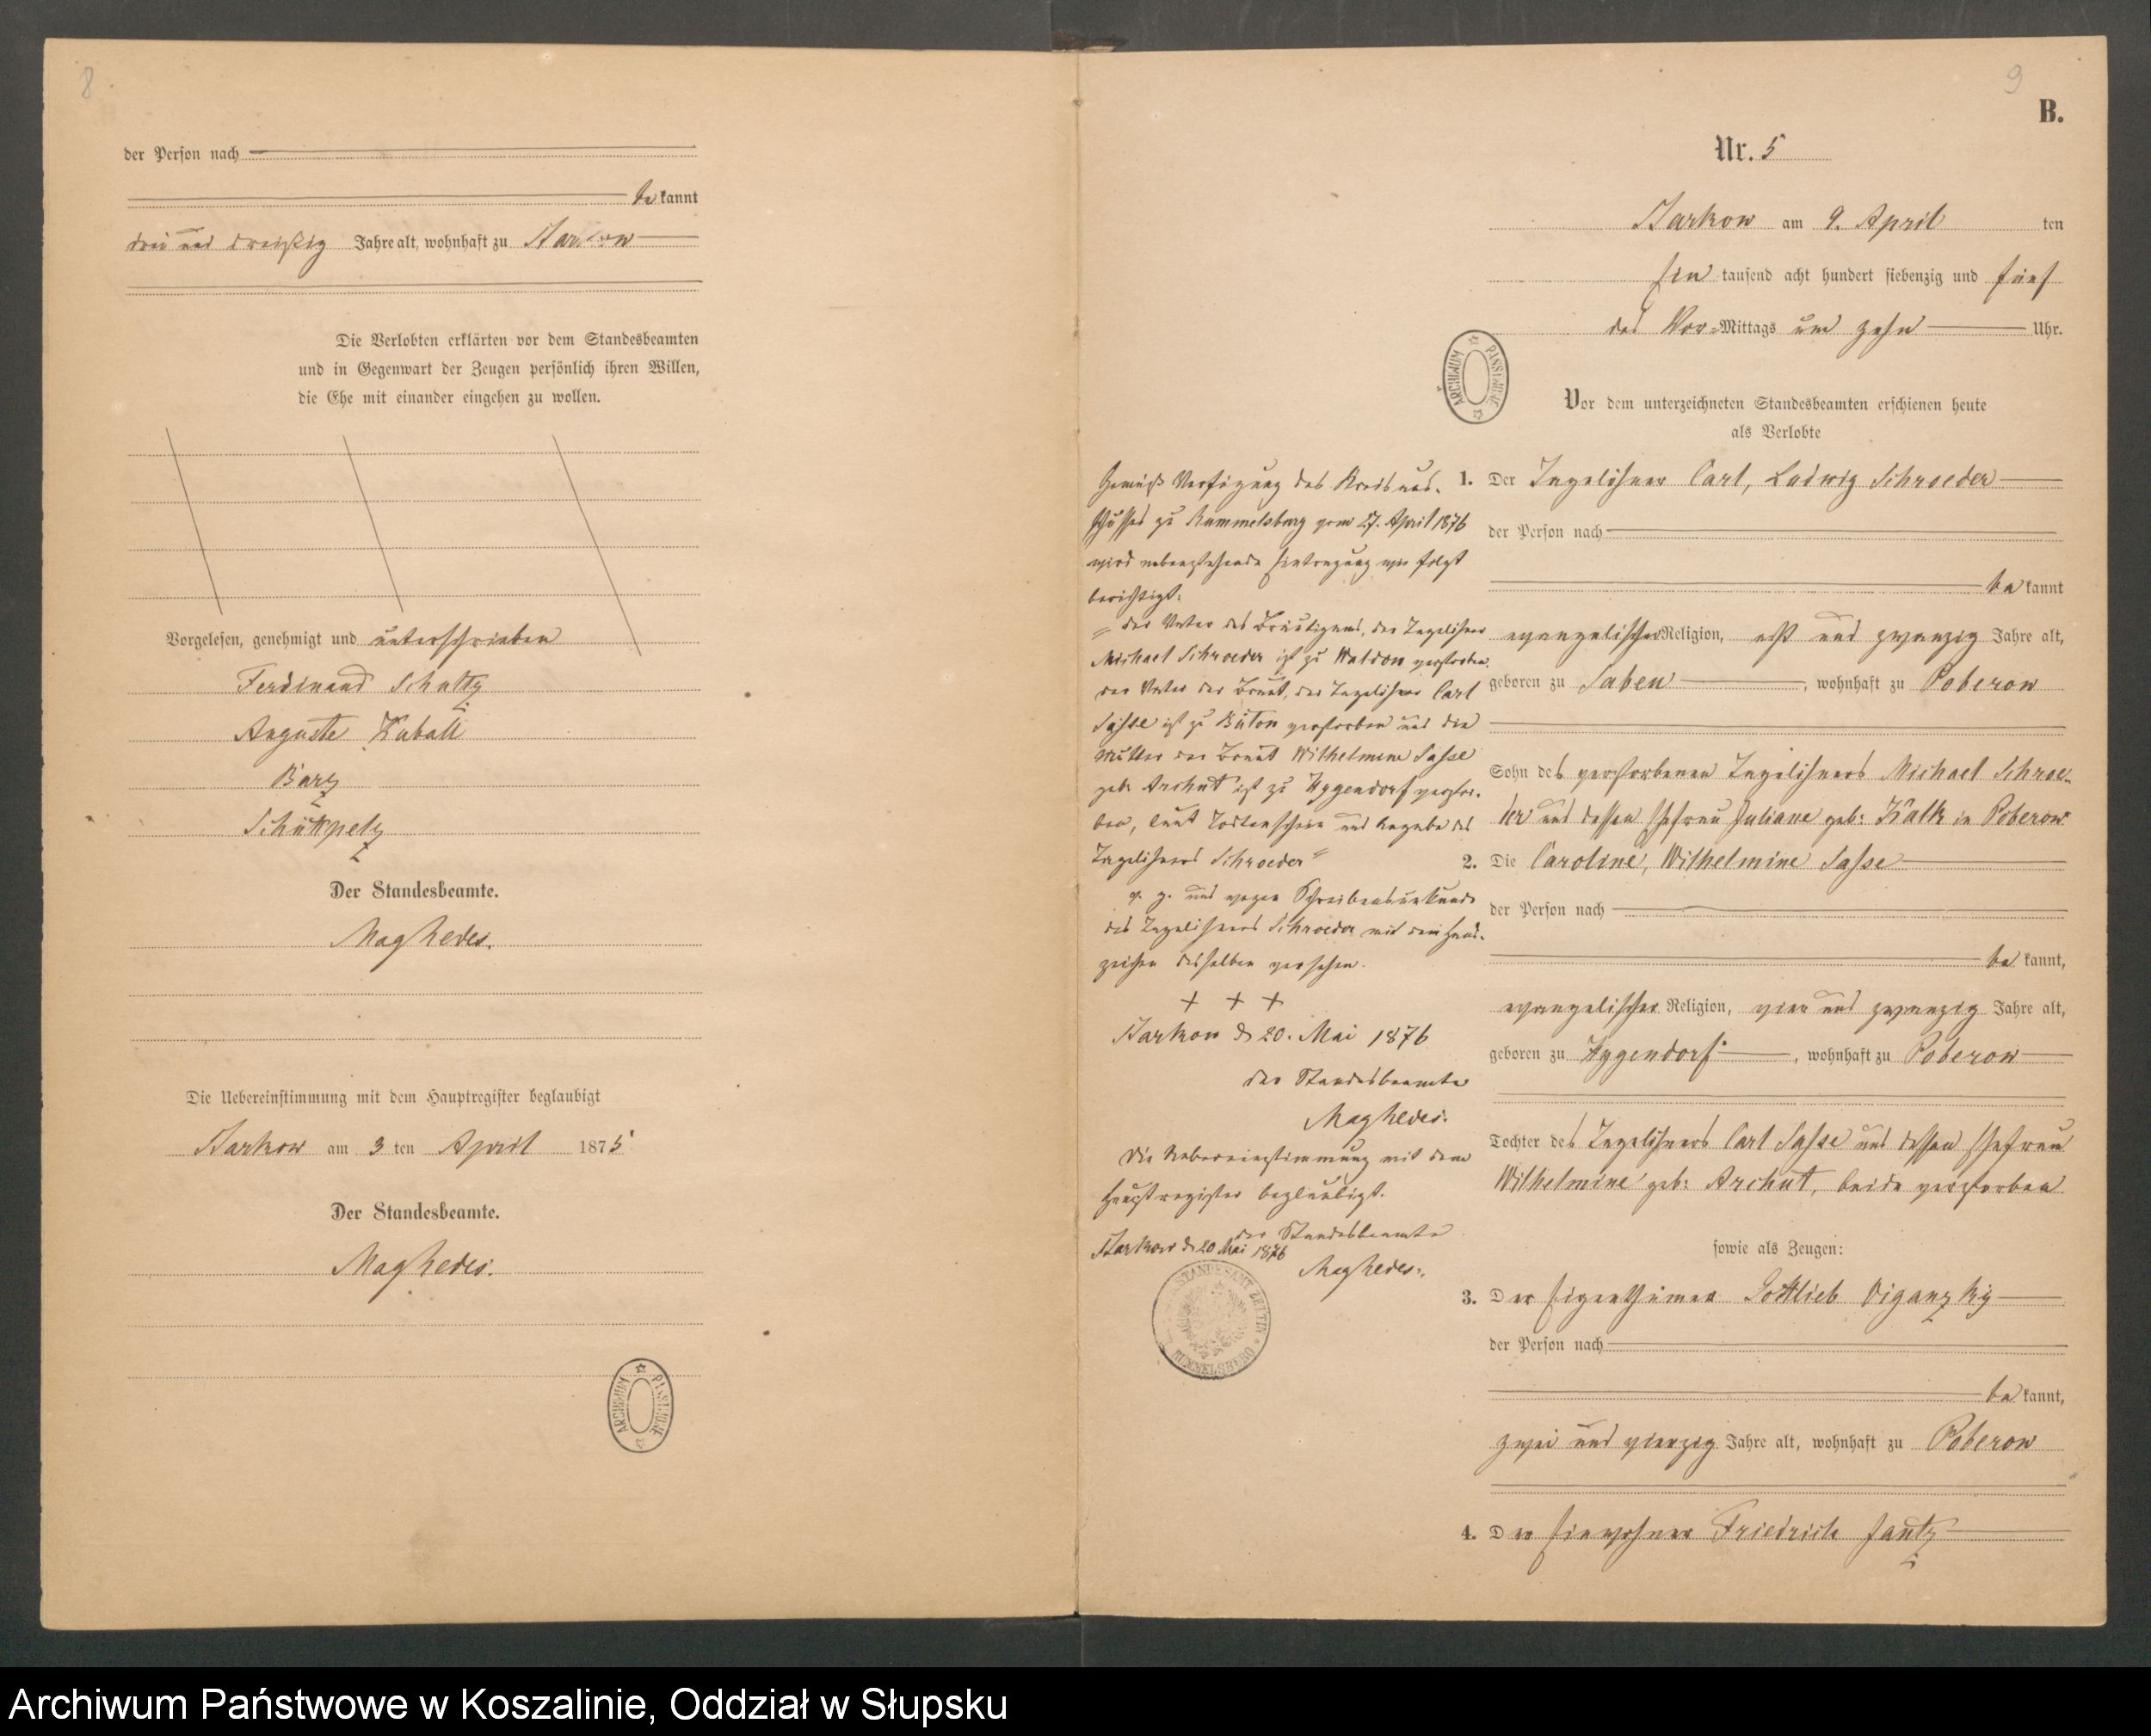 8
der Person nach
bekannt
drei und dreißig Jahre alt, wohnhaft zu Starkow
Die Verlobten erklärten vor dem Standesbeamten
und in Gegenwart der Zeugen persönlich ihren Willen,
die Ehe mit einander eingehen zu wollen.
Vorgelesen, genehmigt und unterschrieben
Ferdinand Schultz
Auguste Kuball
Barz
Schüttpelz
Der Standesbeamte.
Die Uebereinstimmung mit dem Hauptregister beglaubigt
Starkow am 3 ten April 1875
Der Standesbeamte.
ARCHIWUM PAŃSTWOWE
9
B.
Nr. 5
Starkow am 9. April ten
Ein tausend acht hundert siebenzig und fünf
des Vor-Mittags um zehn Uhr.
ARCHIWUM PAŃSTWOWE
Vor dem unterzeichneten Standesbeamten erschienen heute
als Verlobte
1. Der Tagelöhner Carl, Ludwig Schroeder
der Person nach
bekannt
evangelischer Religion, acht und zwanzig Jahre alt,
geboren zu Saben, wohnhaft zu Poberow
Sohn des verstorbenen Tagelöhners Michael Schroe-
der und dessen Ehefrau Juliane geb: Kalk in Poberow
2. Die Caroline, Wilhelmine Sasse
der Person nach
bekannt,
evangelischer Religion, vier und zwanzig Jahre alt,
geboren zu Hygendorf, wohnhaft zu Poberow
Tochter des Tagelöhners Carl Sasse und dessen Ehefrau
Wilhelmine geb: Archut, beide verstorben
sowie als Zeugen:
3. Der Eigenthümer Gottlieb Diganzky
der Person nach
bekannt,
zwei und vierzig Jahre alt, wohnhaft zu Poberow
4. Der Einwohner Friedrich Jantz
Gemäß Verfügung des Kreisaus-
schusses zu Rummelsburg vom 27. April 1876
wird nebenstehende Eintragung wie folgt
berichtigt:
"der Vater des Bräutigams, der Tagelöhner
Michael Schroeder ist zu Waldow verstorben,
der Vater der Braut, der Tagelöhner Carl
Sasse ist zu Büton verstorben und die
Mutter der Braut Wilhelmine Sasse
geb: Archut ist zu Hygendorf verstor-
ben, laut Todtenschein und Angabe des
Tagelöhners Schroeder"
v. g. und wegen Schreibensunkunde
des Tagelöhners Schroeder mit dem Hand-
zeichen desselben versehen.
+ + +
Starkow d 20. Mai 1876
der Standesbeamte
Die Uebereinstimmung mit dem
Hauptregister beglaubigt.
Starkow d. 20 Mai 1876
der Standesbeamte
STANDESAMT ZETTIN
RUMMELSBURG
Archiwum Państwowe w Koszalinie, Oddział w Słupsku